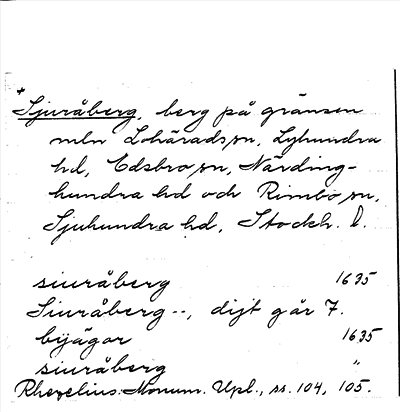 *
Sjuråberg, berg på gränsen
mln Lohäradssn, Lyhundra
hd, Edsbro sn, Närding-
hundra hd och Rimbo sn,
Sjuhundra hd, Stockh. l.
siuråberg 1635
Siuråberg--, dijt går 7.
bijägor 1635
siuråberg "
Rhezelius: Monum. Upl., ss. 104, 105.